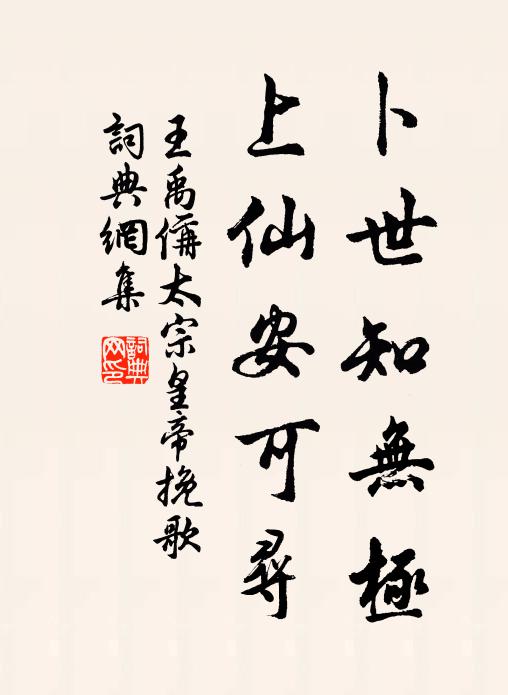 卜世知無極
上仙安可尋
王禹偁太宗皇帝挽歌
詞典網集
詞典網印